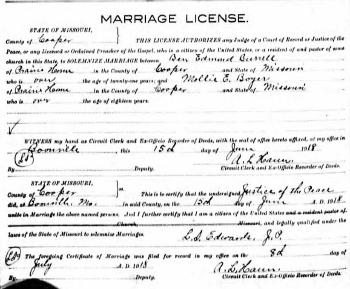 MARRIAGE LICENSE.
STATE OF MISSOURI,
County of Cooper
THIS LICENSE AUTHORIZES any Judge of a Court of Record or Justice of the
Peace, or any Licensed or Ordained Preacher of the Gospel, who is a citizen of the United States, or a resident of and pastor of any
church in this State, to SOLEMNIZE MARRIAGE between Ben Edmund
of Prairie Home in the County of Cooper and State of Missouri
who is over the age of twenty-one years; and Mollie E. Boyer
of Prairie Home in the County of Cooper and State of Missouri
who is over the age of eighteen years.
WITNESS my hand as Circuit Clerk and Ex-Officio Recorder of Deeds, with the seal of office hereto affixed, at my office in
Boonville, this 15th day of June 1918
A. L. Haun
By Deputy. Circuit Clerk and Ex-Officio Recorder of Deeds.
STATE OF MISSOURI,
County of Cooper
This is to certify that the undersigned Justice of the Peace
did, at Boonville, Mo. in said County, on the 15th day of June A. D. 1918
unite in Marriage the above named persons. And I further certify that I am a citizen of the United States and a resident pastor of
Church, Missouri, and legally qualified under the
laws of the State of Missouri to solemnize Marriages.
L. S. Edwards J.P.
The foregoing Certificate of Marriage was filed for record in my office on the 8th day of
July A. D. 1918
A. L. Haun
By Deputy Circuit Clerk and Ex-Officio Recorder of Deeds.